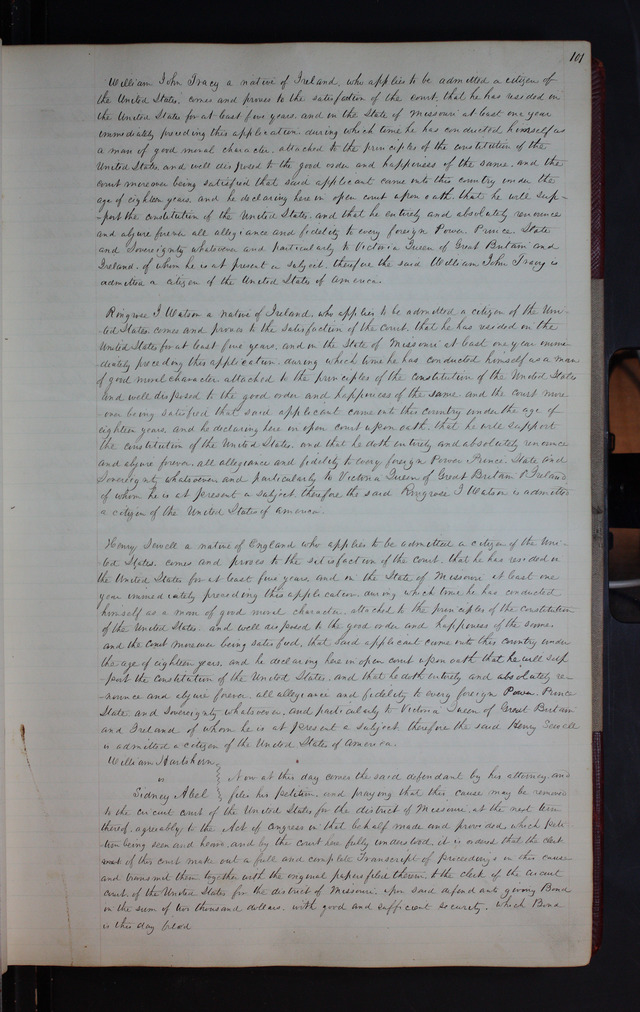 101
William John Tracy a native of Ireland, who applies to be admitted a citizen of
the United States, comes and proves to the satisfaction of the court, that he has resided in
the United States for at least five years, and in the State of Missouri at least one year
immediately preceding this application during which time he has conducted himself as
a man of good moral character, attached to the principles of the constitution of the
United States and well disposed to the good order and happiness of the same, and the
court moreover being satisfied that said applicant came into this country under the
age of eighteen years, and he declaring here in open court upon oath, that he will sup-
-port the constitution of the United States, and that he entirely and absolutely renounce
and abjure forever all allegiance and fidelity to every foreign Power, Prince, State
and Sovereignty whatsoever and particularly to Victoria Queen of Great Britain and
Ireland, of whom he is at present a subject, therefore the said William John Tracy is
admitted a citizen of the United States of America.
Ringrose J Watson a native of Ireland, who applies to be admitted a citizen of the Uni-
-ted States, comes and proves to the satisfaction of the court, that he has resided in the
United States for at least five years, and in the State of Missouri at least one year imme-
-diately preceding this application, during which time he has conducted himself as a man
of good moral character attached to the principles of the constitution of the United States
and well disposed to the good order and happiness of the same and the court more-
over being satisfied that said applicant came into this country under the age of
eighteen years, and he declaring here in open court upon oath, that he will support
the constitution of the United States, and that he doth entirely and absolutely renounce
and abjure forever, all allegiance and fidelity to every foreign Power Prince, State and
Sovereignty whatsoever, and particularly to Victoria Queen of Great Britain & Ireland
of whom he is at present a subject, therefore the said Ringrose J Watson is admitted
a citizen of the United States of America.
Henry Sewell a native of England who applies to be admitted a citizen of the Uni-
-ted States, comes and proves to the satisfaction of the court, that he has resided in
the United States for at least five years, and in the State of Missouri at least one
year immediately preceding this application, during which time he has conducted
himself as a man of good moral character, attached to the principles of the constitution
of the United States, and well disposed to the good order and happiness of the same,
and the court moreover being satisfied, that said applicant came into this country under
the age of eighteen years, and he declaring here in open court upon oath that he will sup
-port the constitution of the United States, and that he doth entirely and absolutely re-
-nounce and abjure forever, all allegiance and fidelity to every foreign Power, Prince
State and Sovereignty whatsoever, and particularly to Victoria Queen of Great Britain
and Ireland of whom he is at present a subject therefore the said Henry Sewell
is admitted a citizen of the United States of America.
William Hartshorn
vs
Sidney Abel
Now at this day comes the said defendant by his attorney, and
files his petition, and praying that this cause may be removed
to the circuit court of the United States for the district of Missouri, at the next term
thereof, agreeably to the Act of Congress in that behalf made and provided, which peti-
tion being seen and heard, and by the court here fully understood, it is ordered that the clerk
of this court make out a full and complete Transcript of proceedings in this cause
and transmit them together with the original papers filed therein, to the clerk of the circuit
court of the United States for the district of Missouri, upon said defendant giving Bond
in the sum of two thousand dollars, with good and sufficient security, which Bond
is this day filed